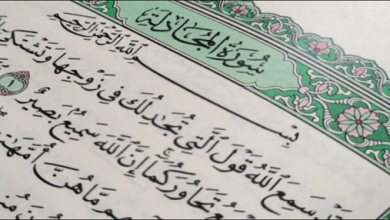 سُورَةُ المُجَادلَة
بِسْمِ ٱللَّهِ ٱلرَّحْمَٰنِ ٱلرَّحِيمِ
سَمِعَ ٱللَّهُ قَوْلَ ٱلَّتِي تُجَٰدِلُكَ فِي زَوْجِهَا وَتَشْتَكِي
تَحَاوُرَكُمَا إِنَّ ٱللَّهَ سَمِيعٌ بَصِيرٌ ١
مَّا هُنَّ